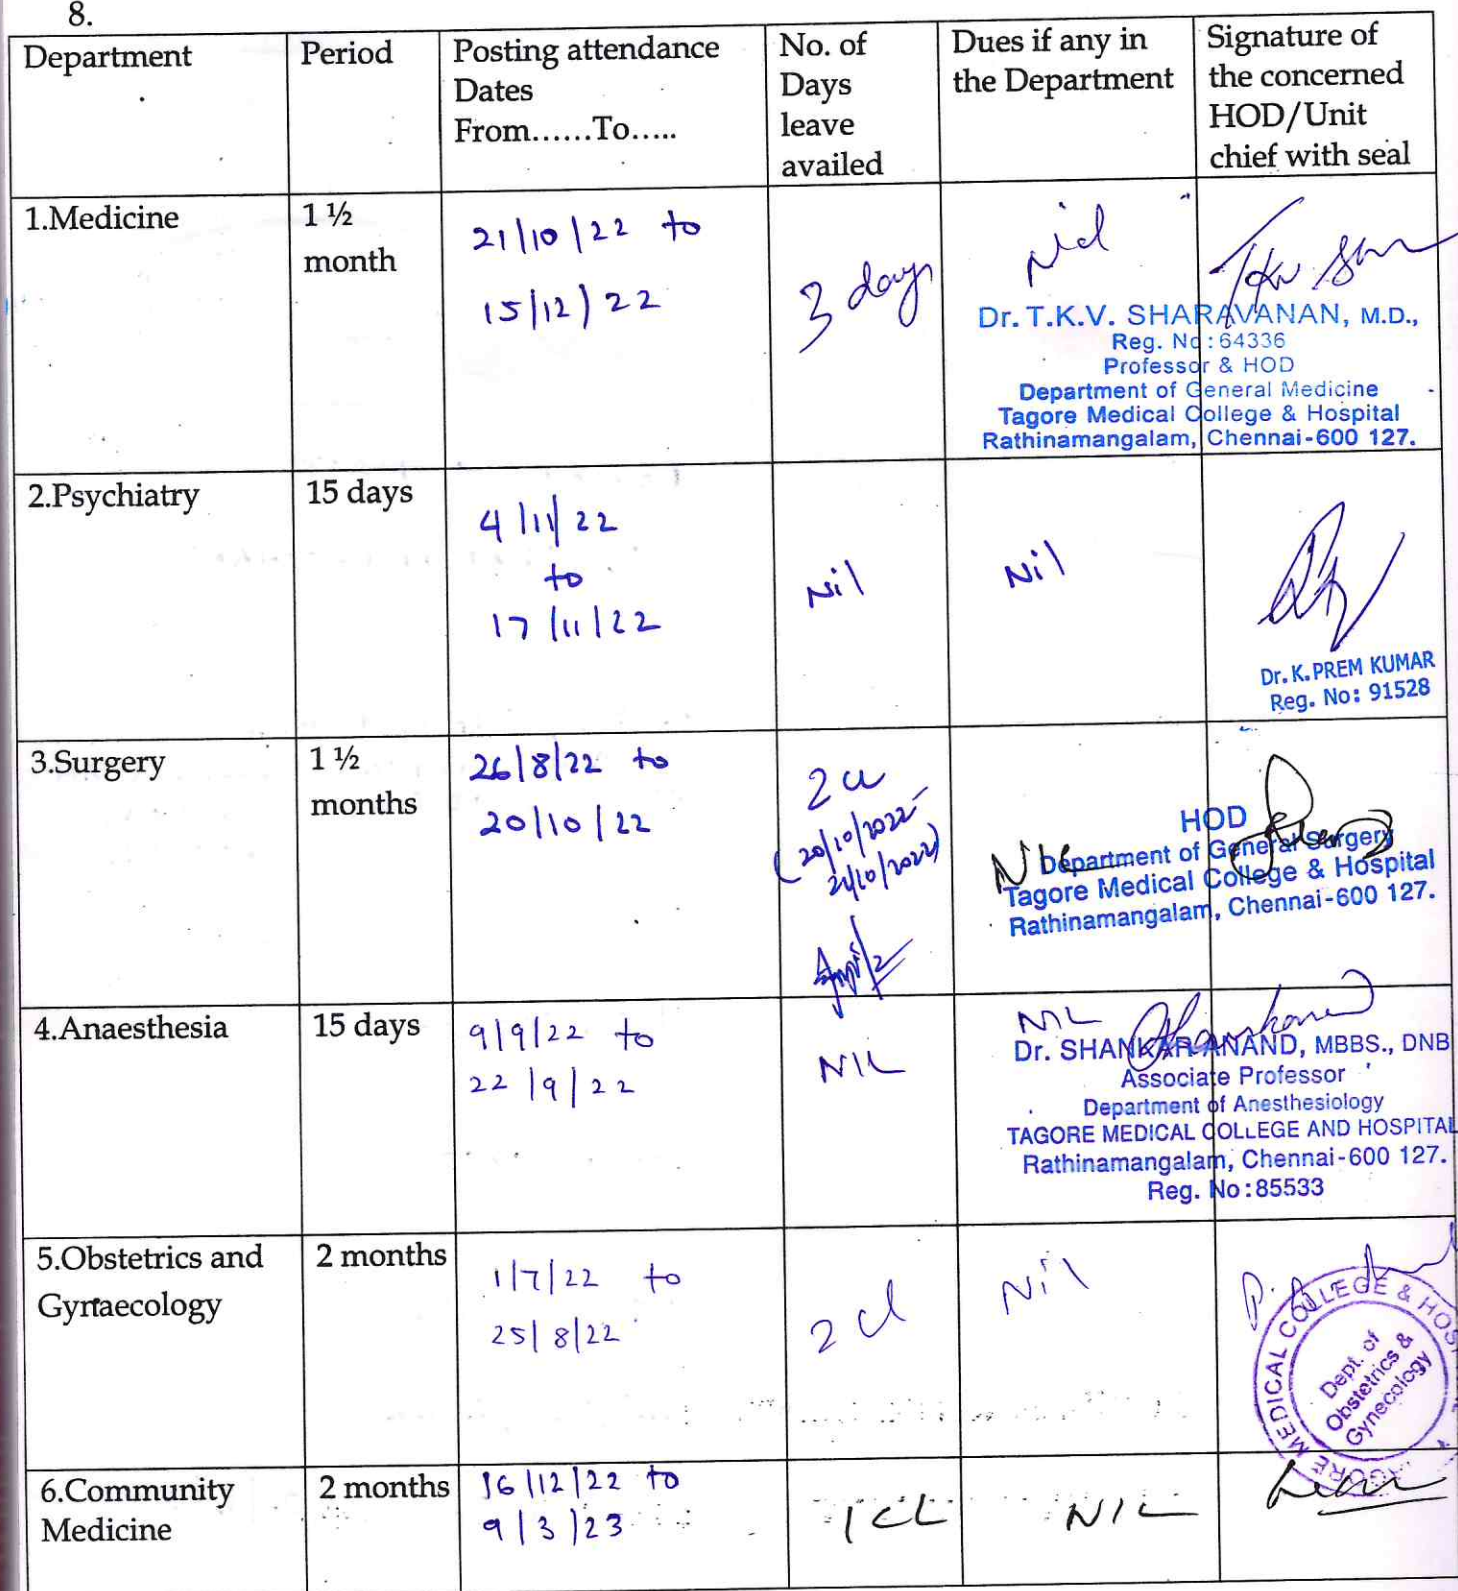 8.
Department
Period
Posting attendance
Dates
From......To.....
No. of
Days
leave
availed
Dues if any in
the Department
Signature of
the concerned
HOD/Unit
chief with seal
1.Medicine
1 ½
month
21/10/22 to
15/12/22
3 days
Nil
Dr. T.K.V. SHARAVANAN, M.D.,
Reg. No:64336
Professor & HOD
Department of General Medicine
Tagore Medical College & Hospital
Rathinamangalam, Chennai-600 127.
2.Psychiatry
15 days
4/11/22
to
17/11/22
Nil
Nil
Dr. K. PREM KUMAR
Reg. No: 91528
3.Surgery
1 ½
months
26/8/22 to
20/10/22
2 cl
(20/10/2022
21/10/2022)
NIL
HOD
Department of General Surgery
Tagore Medical College & Hospital
Rathinamangalam, Chennai-600 127.
4.Anaesthesia
15 days
9/9/22 to
22/9/22
NIL
NIL
Dr. SHANKAR ANAND, MBBS., DNB
Associate Professor
Department of Anesthesiology
TAGORE MEDICAL COLLEGE AND HOSPITAL
Rathinamangalam, Chennai-600 127.
Reg. No:85533
5.Obstetrics and
Gynaecology
2 months
1/7/22 to
25/8/22
2 cl
Nil
MEDICAL COLLEGE &
Dept. of
Obstetrics &
Gynecology
6.Community
Medicine
2 months
16/12/22 to
9/3/23
1 CL
NIL